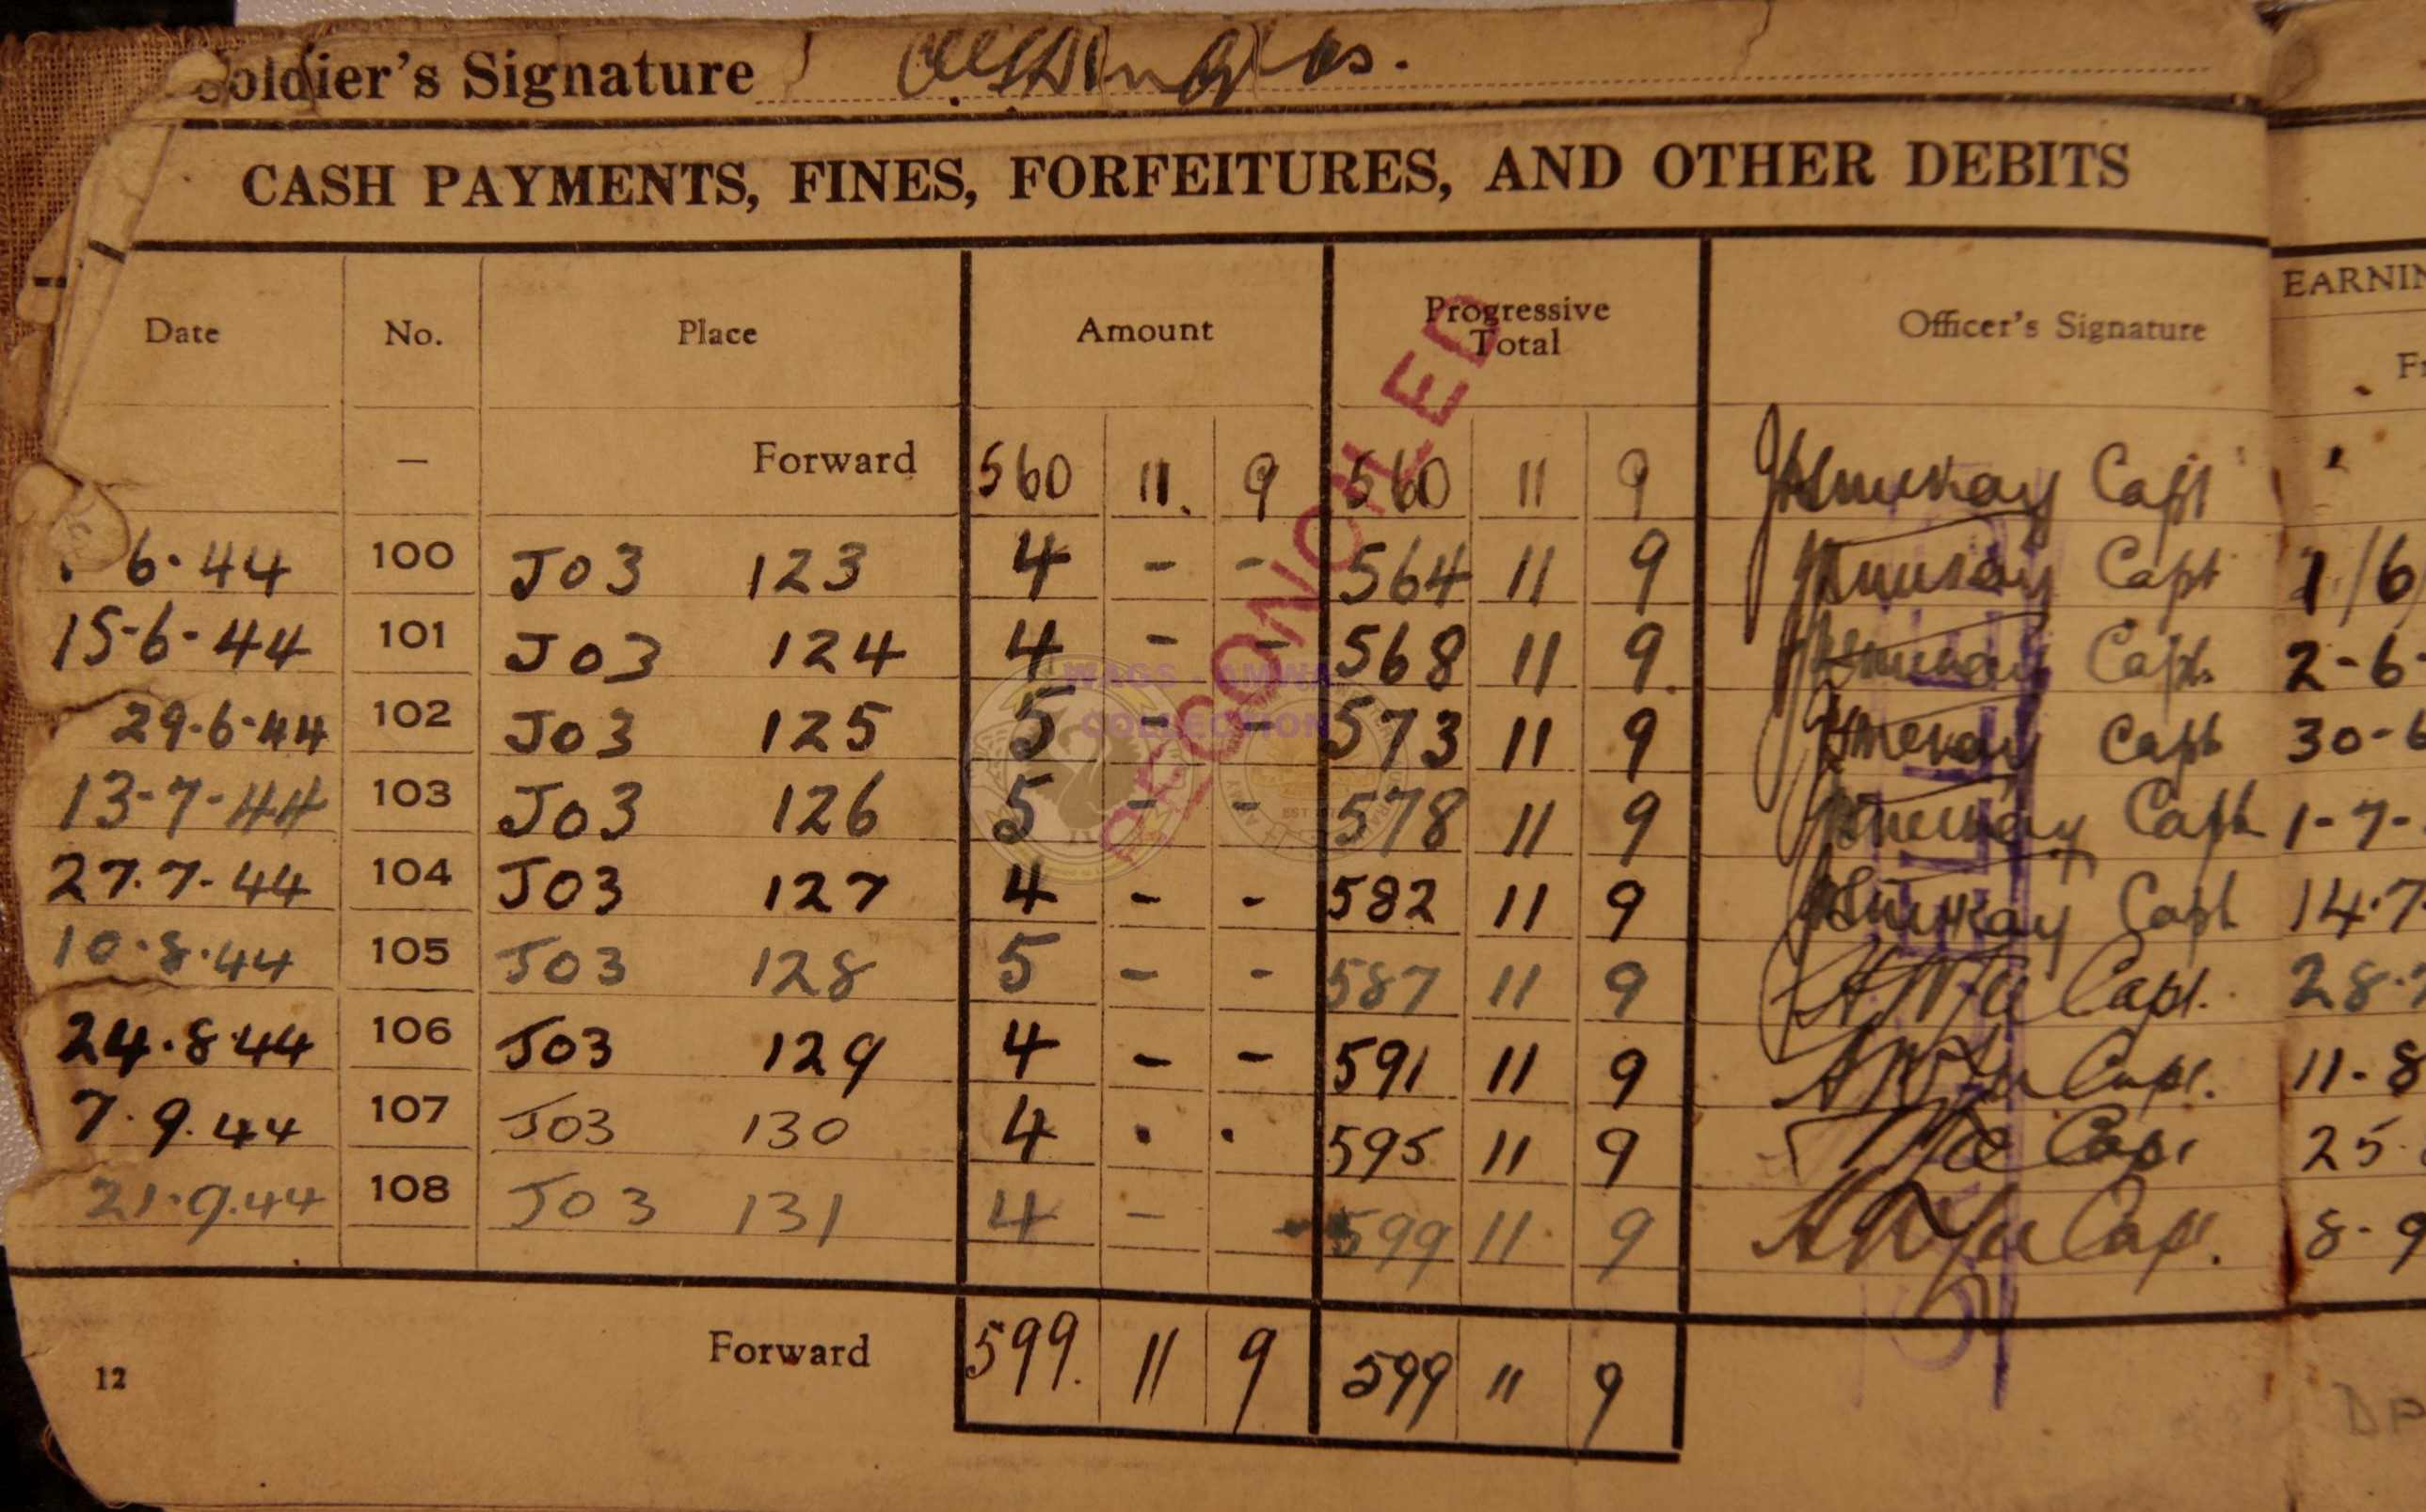 Soldier's Signature
CASH PAYMENTS, FINES, FORFEITURES, AND OTHER DEBITS
Date No. Place Amount Progressive Total Officer's Signature
EARNIN
— Forward 560 11. 9 560 11 9 Capt
6.44 100 J03 123 4 - - 564 11 9 Capt 1/6
15-6-44 101 J03 124 4 - - 568 11 9 Capt. 2-6-
29.6.44 102 J03 125 5 - - 573 11 9 Capt 30-6
13-7-44 103 J03 126 5 - - 578 11 9 Capt 1-7-
27.7-44 104 J03 127 4 - - 582 11 9 Capt 14.7.
10.8.44 105 J03 128 5 - - 587 11 9 Capt. 28.7
24.8.44 106 J03 129 4 - - 591 11 9 Capt. 11-8
7.9.44 107 J03 130 4 . . 595 11 9 Capt 25.
21.9.44 108 J03 131 4 - - 599 11 9 Capt. 8-9
Forward 599. 11 9 599 11 9
12
RECONCILED
WAGS - AMWA
COLLECTION